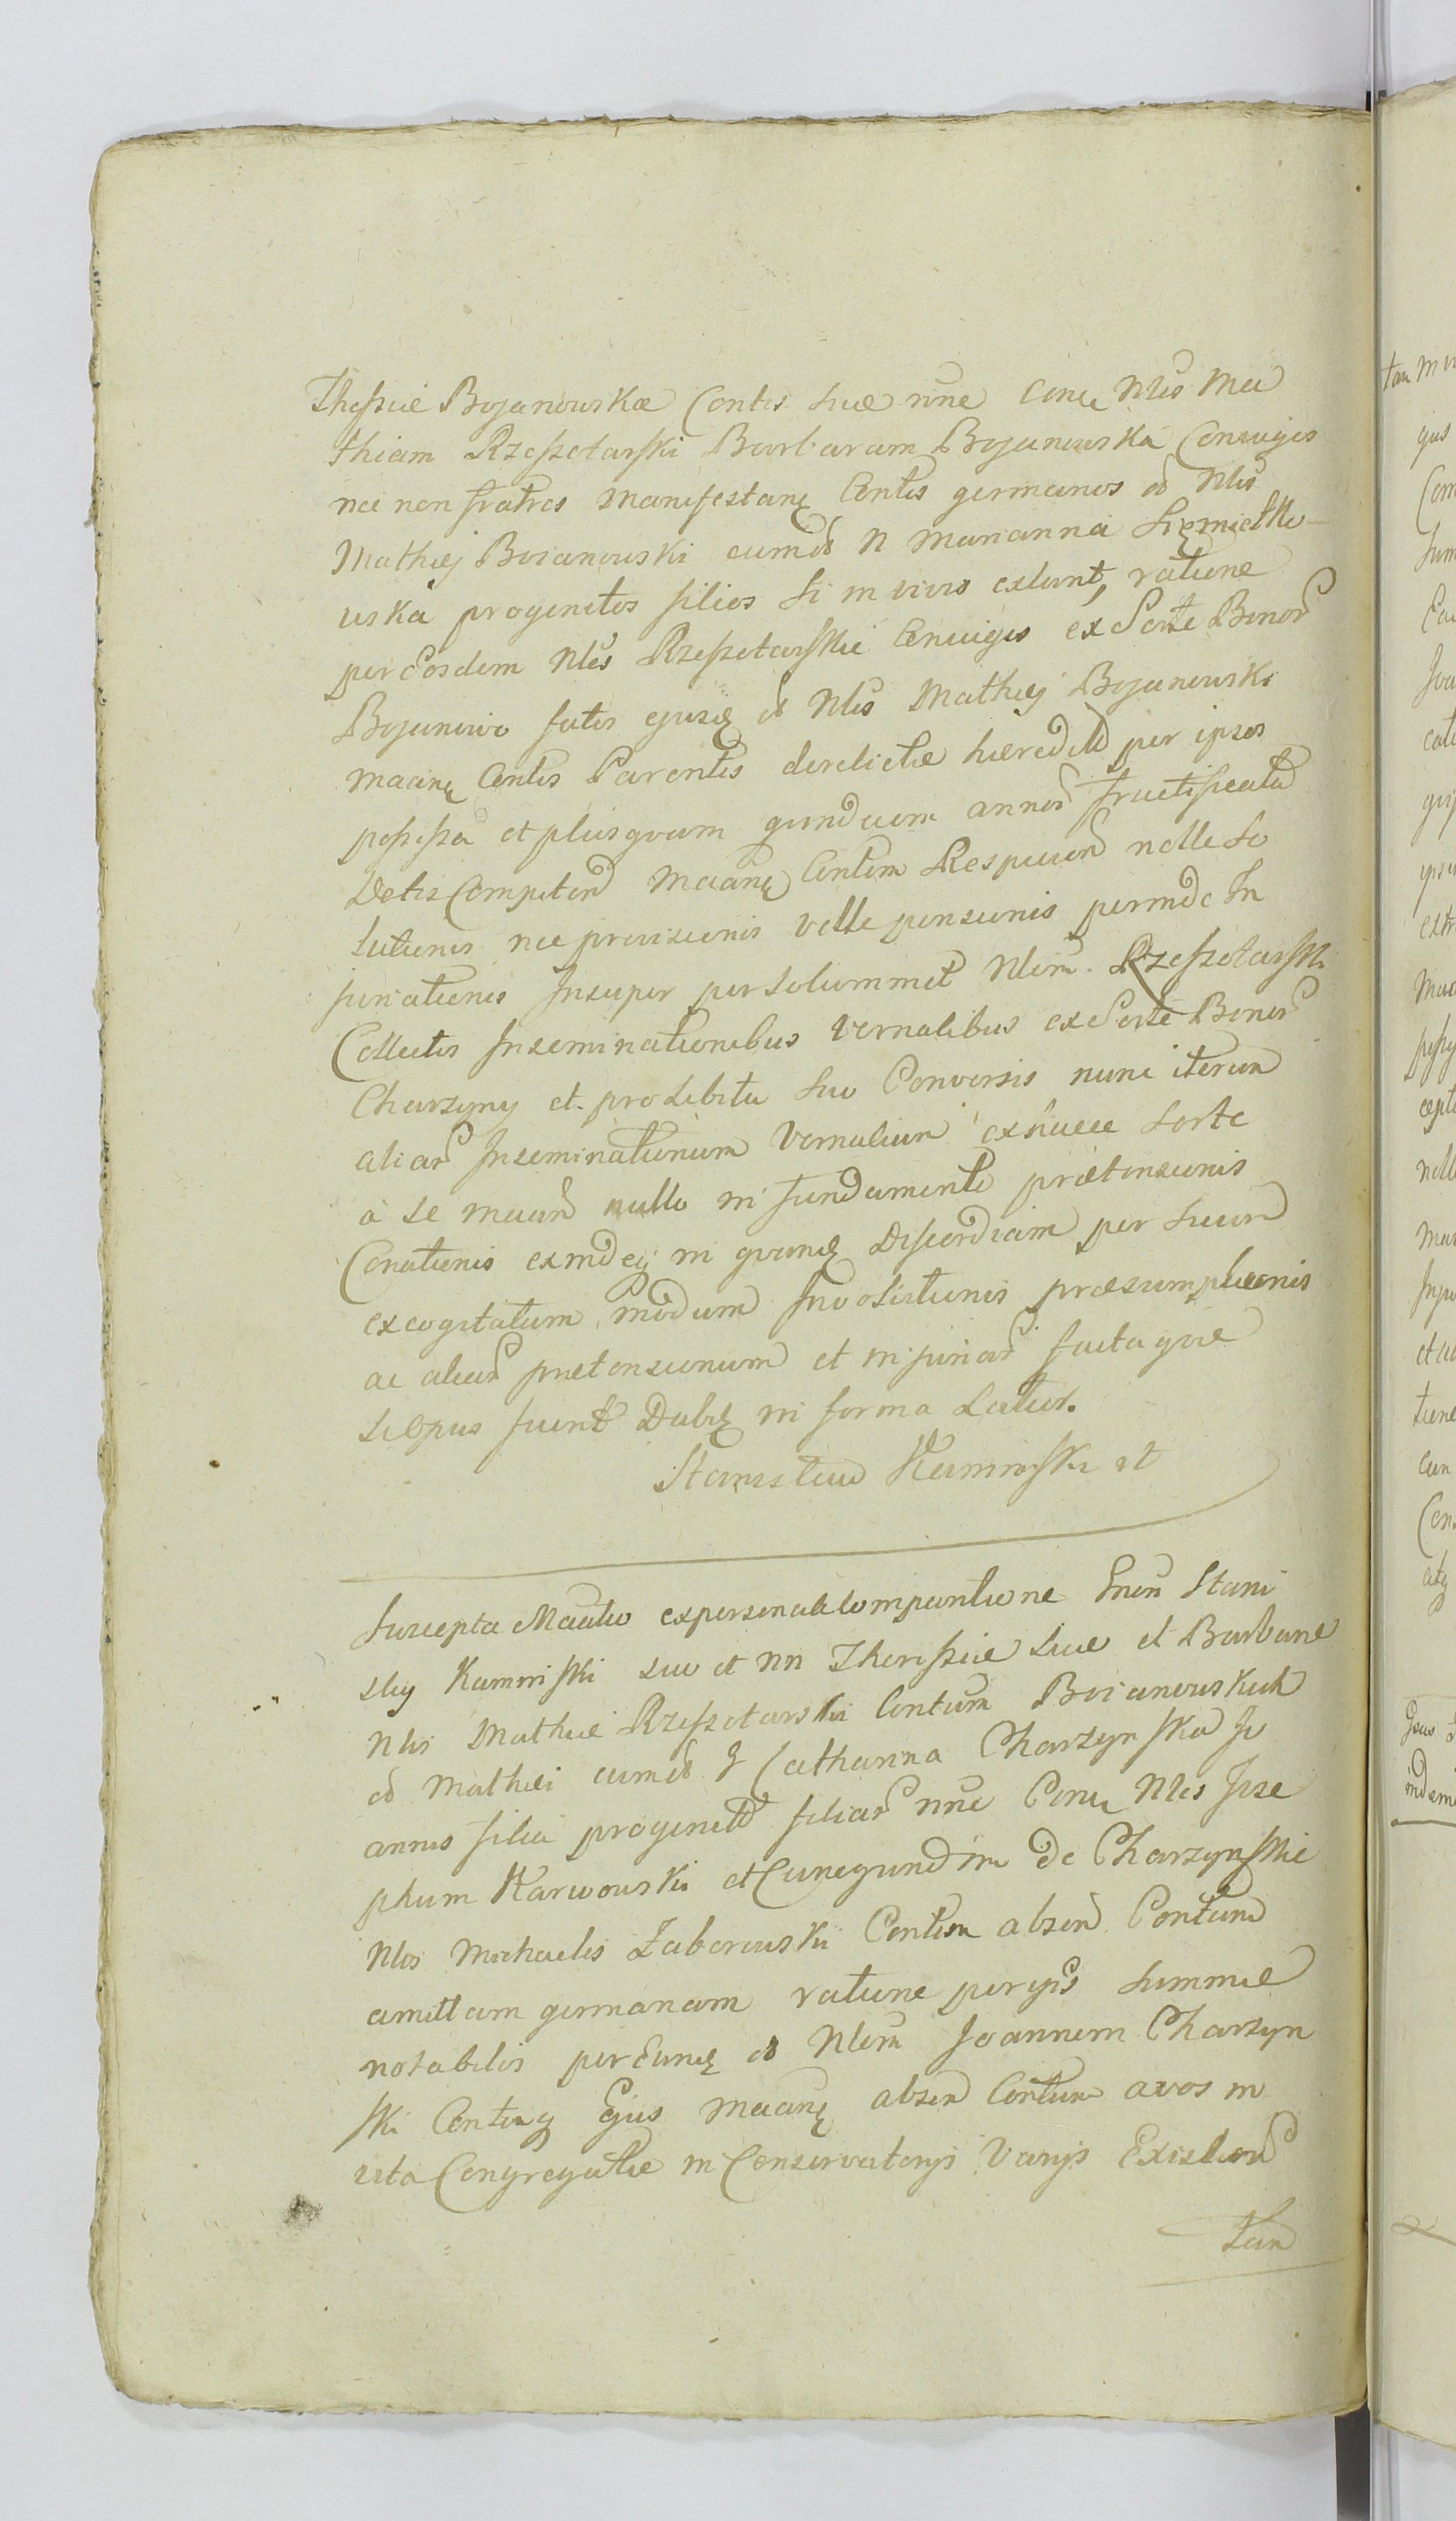 Theßiæ Bojanowska Contis suæ nne Conu Nlis Ma
thiam Rzeßotarßki Barbaram Bojanowska Conuiges
nec non fratres Manifestanę Contis germanos ob Nlis
Mathiej Boianowski eum ob N Marianna Siemiątko-
uska progenitos filios si in vivis extant, ratione
per Eosdem Nles Rzeßotarskie Conuiges ex Sorte Bonor
Bojanowo fatis ejusq ob Nlis Mathiej Bojanowski
Maanę Contis Parentis derelictæ hæredit per ipsos
poßeßa et plusquam quinduem annor fructificata
Detis Competen Maanę Contem Respicien nolle So
lutionis nec provisionis velle pensionis perinde In
juriationis Insuper per solummet Nlem Rzeßotarski
Collectis Inseminationibus Vernalibus ex Sorte Bonor
Charzyny et pro Libitu suo Conversis nunc iterum
aliar Inseminationum Vernalium ex hacce Sorte
à se maan nullo in fundamento prætensionis
Conationis exindeq in quanq Discordiam per suum
excogitatum modum Involutionis præsumptionis
ac aliar prætensionum et injuriar facta quæ
Sæpus fuint Dabę in forma Latior.
Stanisław Kaminski it
Suscepta Maatio ex personali Comparitione Gnen Stani
slaj Kaminski suo et nn Thereßiæ suæ et Barbaræ
Nlis Mathiæ Rzeßotarski Contum Boianowskich
ob Mathiei eum ob g Catharina Charzynska Jo
annis filia progenit filiar nne Conu Nles Jose
phum Karwowski et Cunegundim de Charzynskie
Nlis Michaelis Zaborowski Contem absen Contum
amittam germanam ratione per ips summæ
notabilis per Eunq ob Nlem Joannem Charzyn
ski Contuq Ejus Maanę absen Contum avos in
vita Congregatæ in Conservatorijs Varijs Existen
Tan